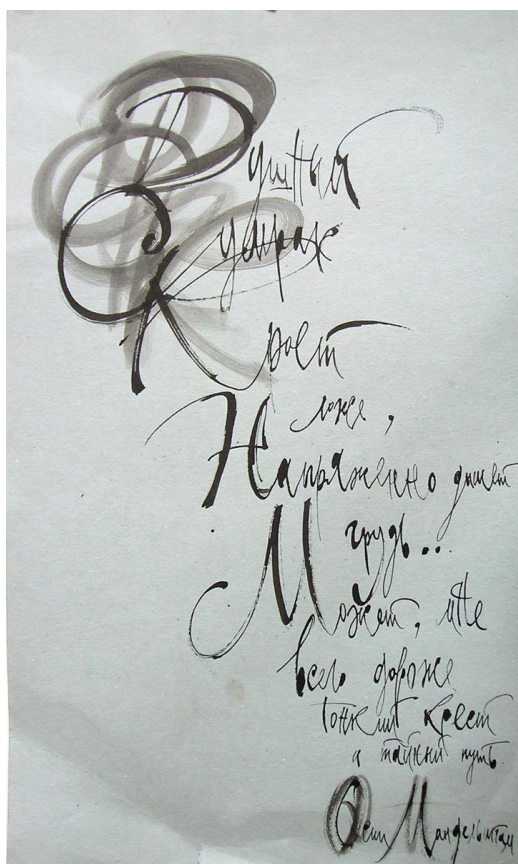 Душный
Сумрак
Кроет
ложе,
Напряженно дышит
грудь...
Может, мне
всего дороже
тонкий крест
и тайный путь.
Осип Мандельштам